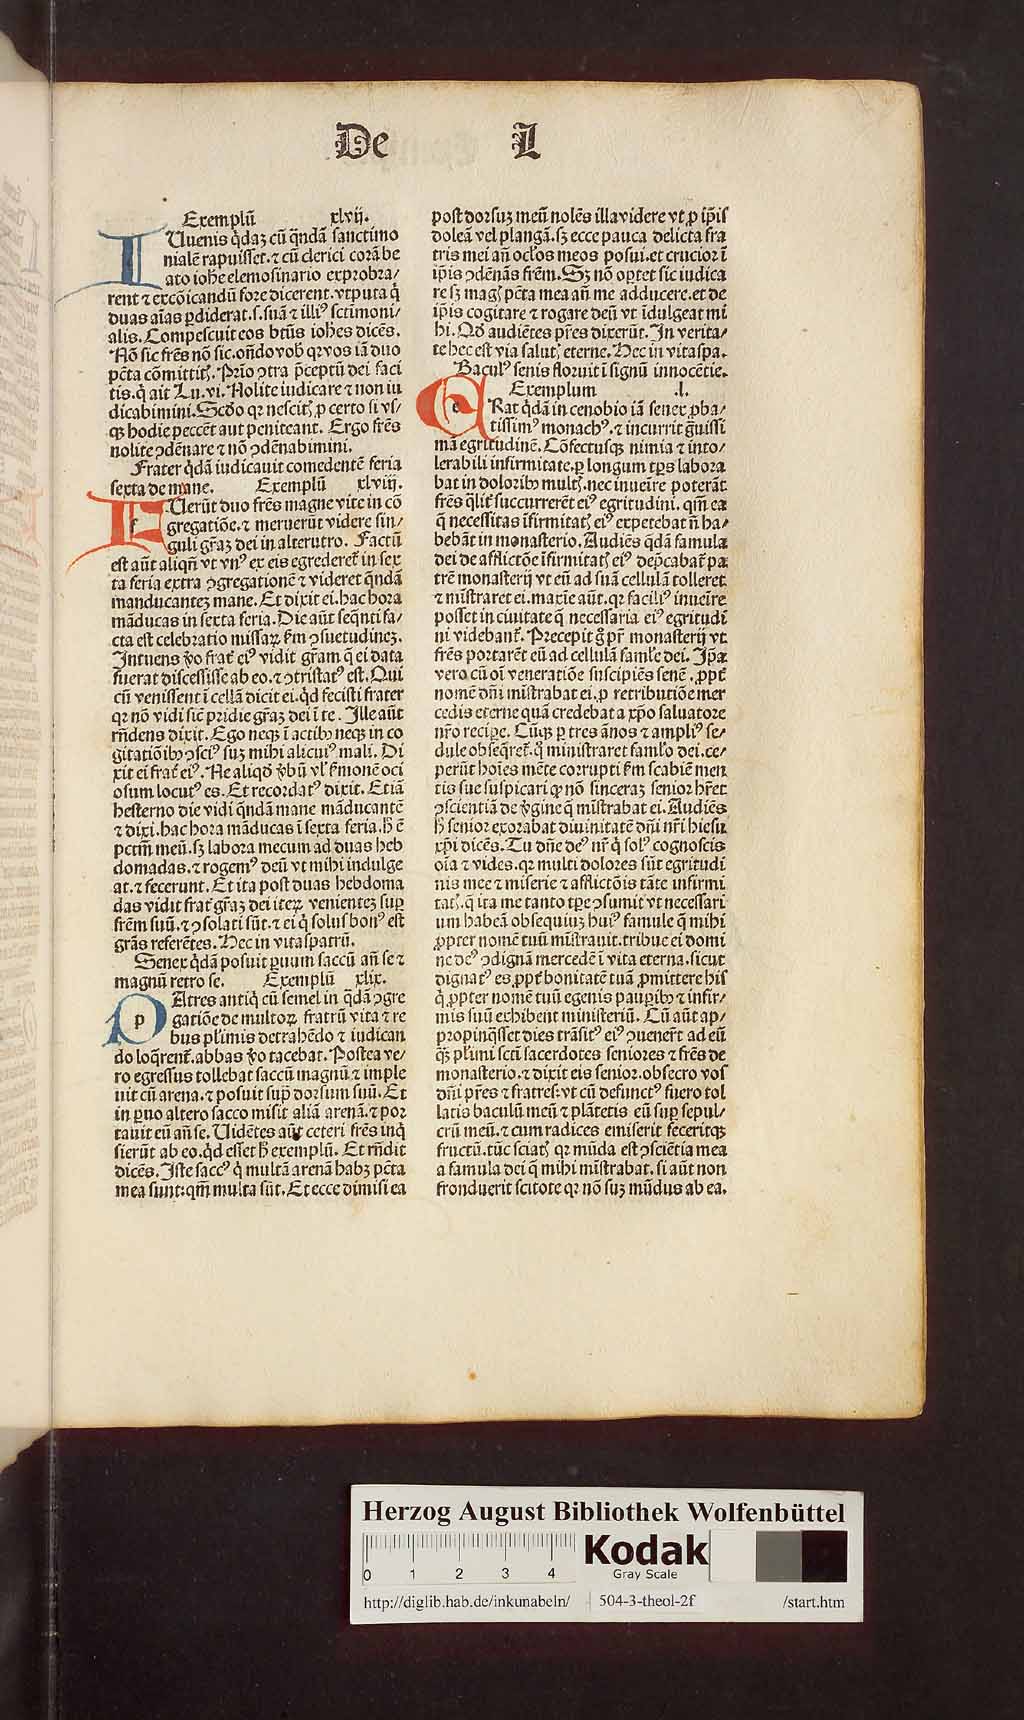 De I
Exemplū xlvij.
IUuenis q̄daz cū q̄ndā sanctimo
nialē rapuisset. ⁊ cū clerici corā be
ato iohe elemosinario exprobra/
rent ⁊ excōicandū fore dicerent. vtputa q̄
duas aīas ꝑdiderat. s. suā ⁊ illiꝰ sctimoni/
alis. Compescuit eos btūs iohes dicēs.
Nō sic frēs nō sic. oñdo vob̄ qꝛ vos iā duo
pctā cōmittitꝭ. Prīo ꝯtra p̄ceptū dei faci
tis. q̄ ait Lu. vi. Nolite iudicare ⁊ non iu
dicabimini. Scd̄o qꝛ nescitꝭ ꝓ certo si vs/
qꝫ hodie peccēt aut peniteant. Ergo frēs
nolite ꝯdēnare ⁊ nō ꝯdēnabimini.
Frater q̄dā iudicauit comedentē feria
sexta de mane. Exemplū xlviij.
FUerūt duo frēs magne vite in cō
gregatiōe. ⁊ meruerūt videre sin/
guli grāz dei in alterutro. Factū
est aūt aliqn̄ vt vnꝰ ex eis egrederet̄ in sex
ta feria extra ꝯgregationē ⁊ videret q̄ndā
manducantez mane. Et dixit ei. hac hora
māducas in sexta feria. Die aūt seq̄nti fa/
cta est celebratio missaꝝ ẜm ꝯsuetudinez.
Intuens ꝟo frat̄ eiꝰ vidit grām q̄ ei data
fuerat discessisse ab eo. ⁊ ꝯtristatꝰ est. Qui
cū venissent ī cellā dicit ei. qd̄ fecisti frater
qꝛ nō vidi sic̄ pridie grāz dei ī te. Ille aūt
rn̄dens dixit. Ego neqꝫ ī actibꝫ neqꝫ in co
gitatiōibꝫ ꝯsciꝰ suz mihi alicuiꝰ mali. Di
xit ei frat̄ eiꝰ. Ne aliqd̄ ꝟbū vl̄ ẜmonē oci
osum locutꝰ es. Et recordatꝰ dixit. Etiā
hesterno die vidi q̄ndā mane māducantē
⁊ dixi. hac hora māducas ī sexta feria. h̄ ē
pctm̄ meū. sꝫ labora mecum ad duas heb
domadas. ⁊ rogemꝰ deū vt mihi indulge
at. ⁊ fecerunt. Et ita post duas hebdoma
das vidit frat̄ grāz dei iteꝝ venientez suꝑ
frēm suū. ⁊ ꝯsolati sūt. ⁊ ei q̄ solus bonꝰ est
grās referētes. Hec in vitaspatrū.
Senex q̄dā posuit ꝑuum saccū an̄ se ⁊
magnū retro se. Exemplū xlix.
PAtres antiq̄ cū semel in q̄dā ꝯgre
gatiōe de multoꝝ fratrū vita ⁊ re
bus pl̄imis detrahēdo ⁊ iudican
do loq̄rent̄. abbas ꝟo tacebat. Postea ve/
ro egressus tollebat saccū magnū ⁊ imple
uit cū arena. ⁊ posuit suꝑ dorsum suū. Et
in ꝑuo altero sacco misit aliā arenā. ⁊ por
tauit eū an̄ se. Uidētes aūt ceteri frēs inq̄
sierūt ab eo. qd̄ esset h̄ exemplū. Et rn̄dit
dicēs. Iste saccꝰ q̄ multā arenā habꝫ pctā
mea sunt: qm̄ multa sūt. Et ecce dimisi ea
post dorsuz meū nolēs illa videre vt ꝓ ip̄is
doleā vel plangā. sꝫ ecce pauca delicta fra
tris mei an̄ ocl̄os meos posui. et crucior ī
ip̄is ꝯdēnās frēm. Sꝫ nō oꝑtet sic iudica
re sꝫ magꝭ pctā mea an̄ me adducere. et de
ip̄is cogitare ⁊ rogare deū vt īdulgeat mi
hi. Qd̄ audiētes pr̄es dixerūt. In verita/
te hec est via salutꝭ eterne. Hec in vitaspa.
Baculꝰ senis floruit ī signū innocētie.
Exemplum .l.
ERat q̄dā in cenobio iā senex ꝓba/
tissimꝰ monachꝰ. ⁊ incurrit ḡuissi
mā egritudinē. Cōfectusqꝫ nimia ⁊ into/
lerabili infirmitate. ꝑ longum tꝑs labora
bat in doloribꝫ multꝭ. nec inuēire poterāt
frēs q̄lit̄ succurrerēt eiꝰ egritudini. qm̄ ea
q̄ necessitas īfirmitatꝭ eiꝰ expetebat n̄ ha/
bebāt in monasterio. Audiēs q̄dā famula
dei de afflictōe īfirmitatꝭ eiꝰ dep̄cabat̄ pa
trē monasterij vt eū ad suā cellulā tolleret
⁊ mīstraret ei. maxīe aūt. qꝛ faciliꝰ inuēire
posset in ciuitate q̄ necessaria eiꝰ egritudi
ni videbant̄. Precepit g̊ pr̄ monasterij vt
frēs portarēt eū ad cellulā faml̄e dei. Ip̄a
vero cū oī veneratiōe suscipiēs senē. ꝓpt̄
nomē dn̄i mīstrabat ei. ꝓ retributiōe mer
cedis eterne quā credebat a xp̄o saluatore
nr̄o recipe. Cūqꝫ ꝑ tres ānos ⁊ ampliꝰ se/
dule obseq̄ret̄. q̄ ministraret faml̄o dei. ce/
perūt hoīes mēte corrupti ẜm scabiē men
tis sue suspicari ꝙ nō sinceraz senior hr̄et
ꝯscientiā de ꝟgine q̄ mīstrabat ei. Audiēs
h̄ senior exorabat diuinitatē dn̄i nr̄i hiesu
xp̄i dicēs. Tu dn̄e deꝰ nr̄ q̄ solꝰ cognoscis
oīa ⁊ vides. qꝛ multi dolores sūt egritudi
nis mee ⁊ miserie ⁊ afflictōis tāte infirmi
tatꝭ. q̄ ita me tanto tꝑe ꝯsumit vt necessari
um habeā obsequiuz huiꝰ famule q̄ mihi
ꝓpter nomē tuū mīstrauit. tribue ei domi
ne deꝰ ꝯdignā mercedē ī vita eterna. sicut
dignatꝰ es ꝓpt̄ bonitatē tuā ꝓmittere his
q̄ ꝓpter nomē tuū egenis pauꝑibꝫ ⁊ infir/
mis suū exhibent ministeriū. Cū aūt ap/
propinq̄sset dies trāsitꝰ eiꝰ ꝯuenert̄ ad eū
q̄ꝫ pl̄imi sctī sacerdotes seniores ⁊ frēs de
monasterio. ⁊ dixit eis senior. obsecro vos
dn̄i pr̄es ⁊ fratres: vt cū defunctꝰ fuero tol
latis baculū meū ⁊ plātetis eū suꝑ sepul/
crū meū. ⁊ cum radices emiserit feceritqꝫ
fructū. tūc sciatꝭ qꝛ mūda est ꝯsciētia mea
a famula dei q̄ mihi mīstrabat. si aūt non
fronduerit scitote qꝛ nō suz mūdus ab ea.
Herzog August Bibliothek Wolfenbüttel
0 1 2 3 4
Kodak
Gray Scale
http://diglib.hab.de/inkunabeln/ 504-3-theol-2f /start.htm